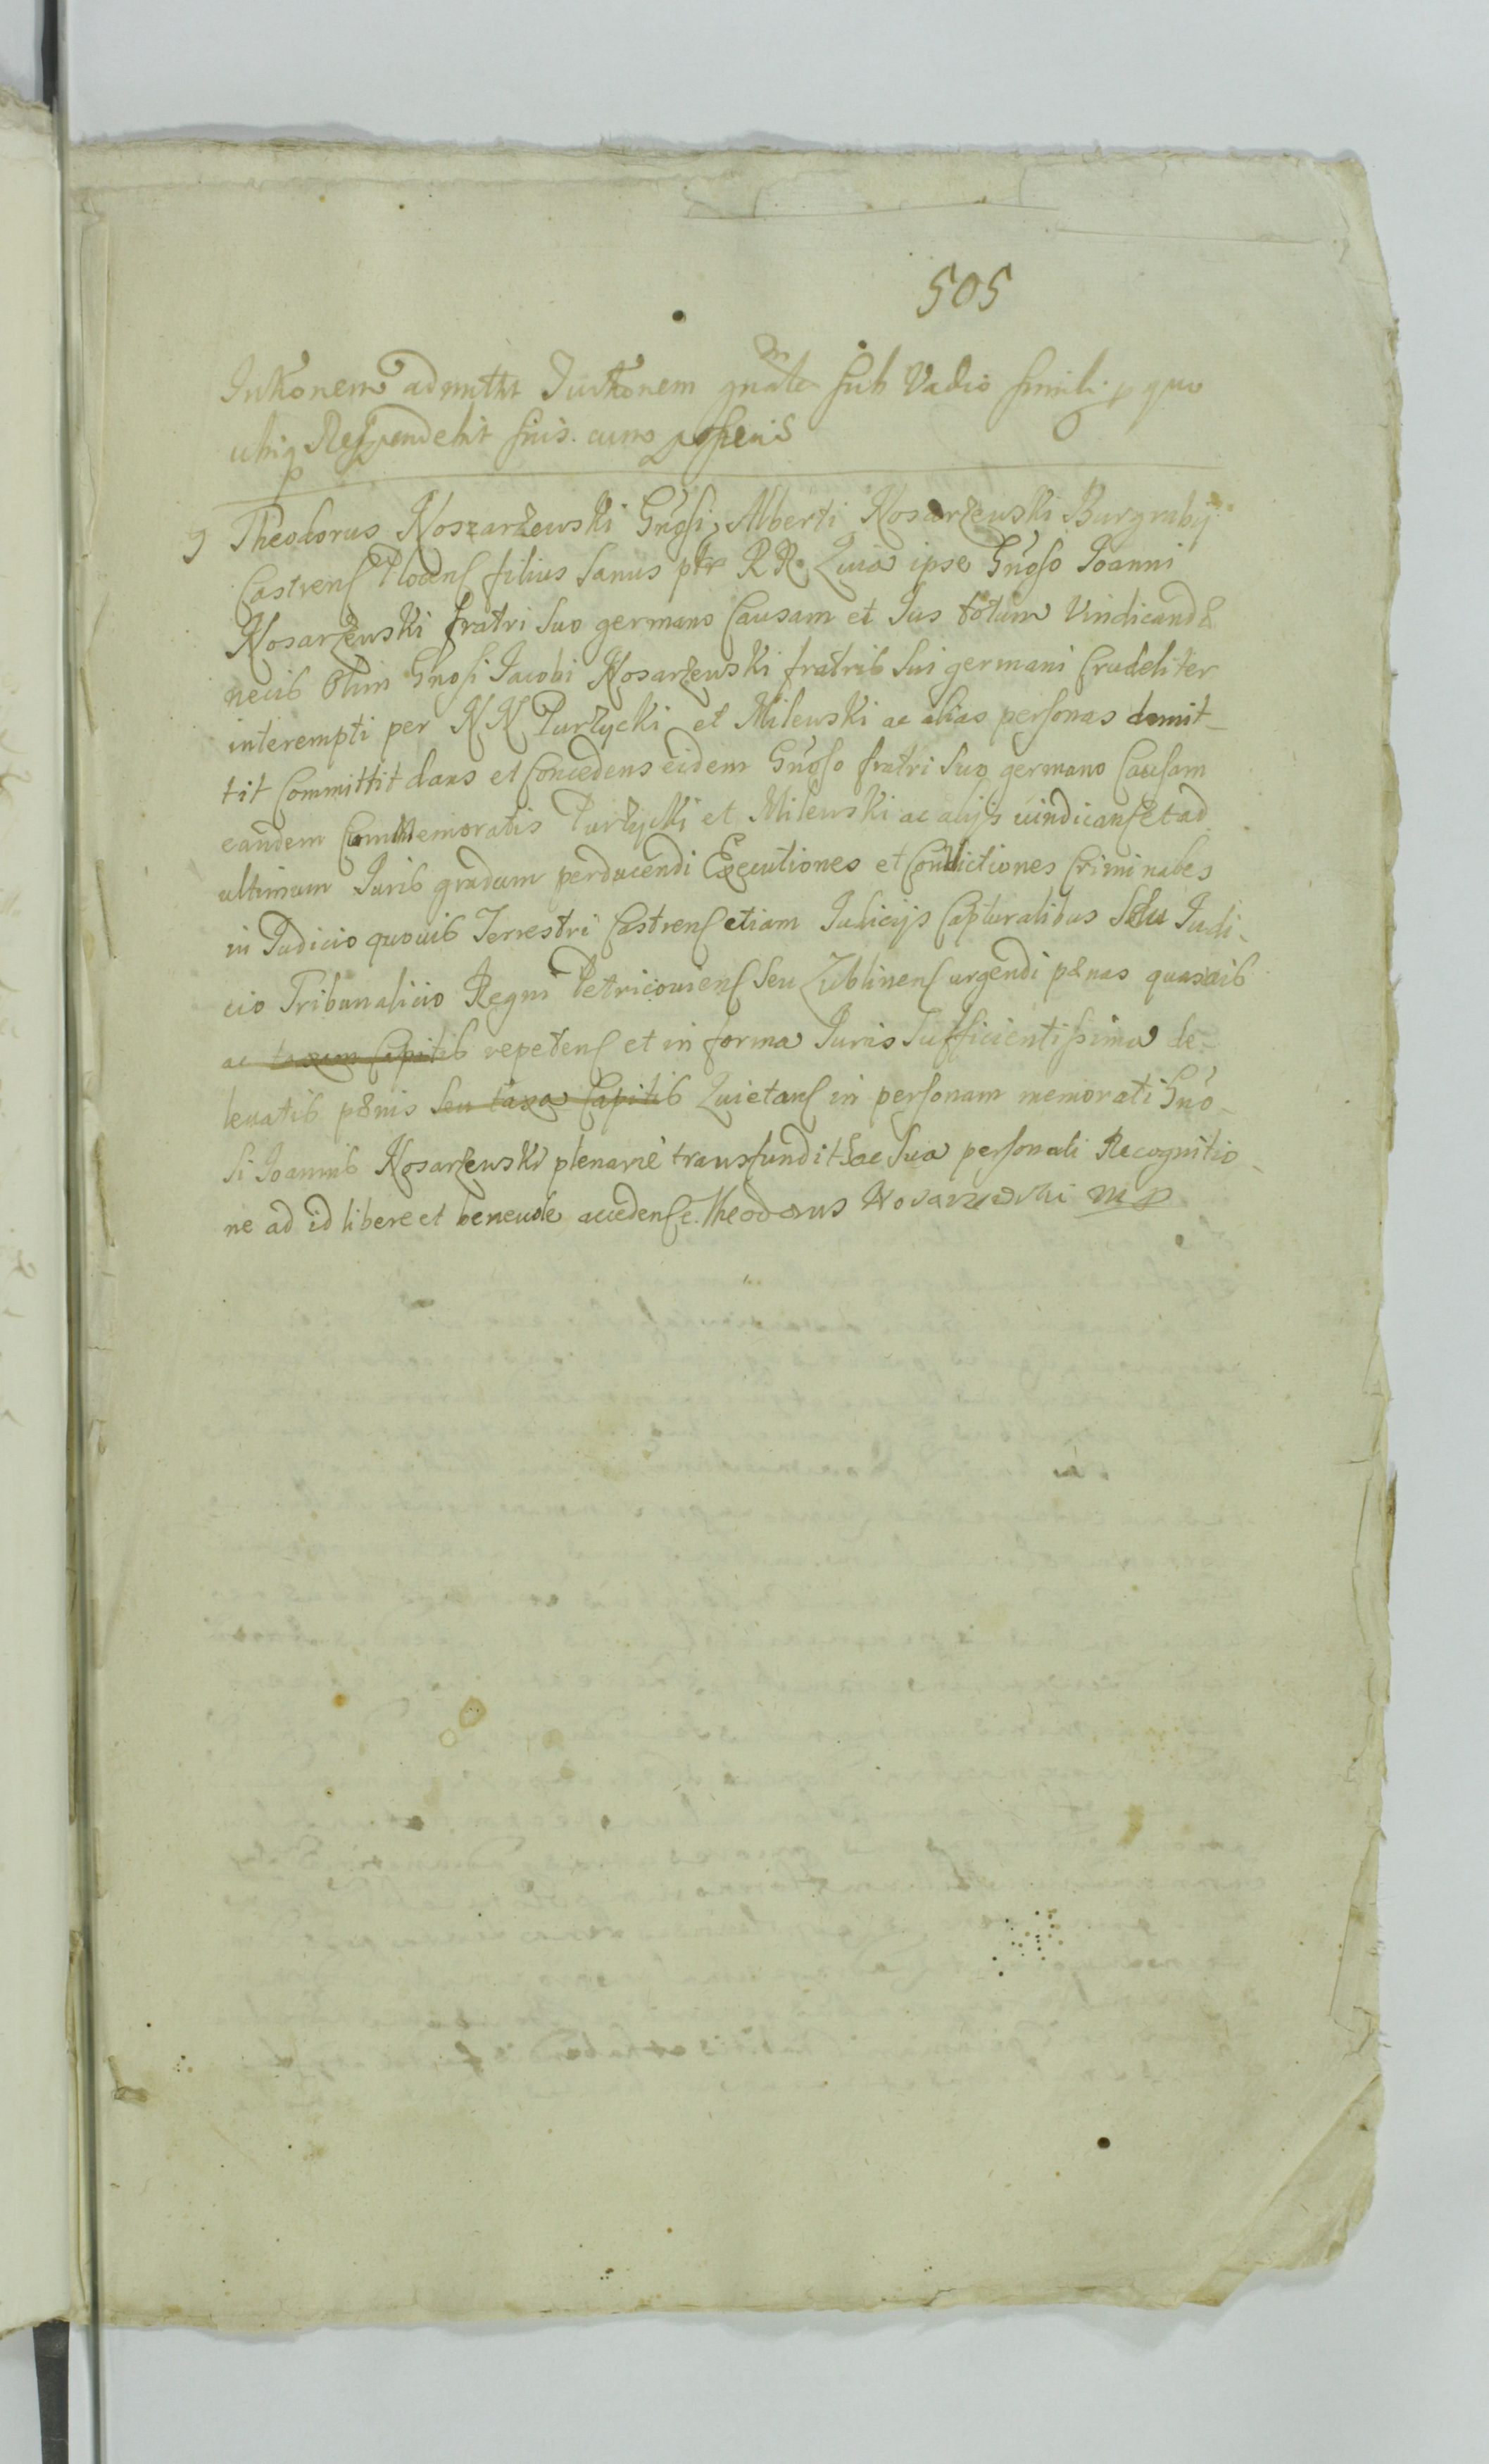 505
admittet sub Vadio simili p quo
ubiq Respondebit suis. cum
9 Theodorus Koszarzewski Gnosi Alberti Kosarzewski Burgrabij
Castrens Plocens filius Sanus ptr RR. Quia ipse Gnoso Joanni
Kosarzewski fratri Suo germano Causam et Jus totum Vindicandæ
necis Olim Gnosi Jacobi Kosarzewski fratris Sui germani Crudeliter
interempti per NN Purzycki et Milewski ac alias personas dimit-
tit Committit dans et Concedens eidem Gnoso fratri Suo germano Causam
eandem Commemoratis Purzycki et Milewski ac alijs vindicans et ad
ultimum Juris gradum perducendi Executiones et Convictiones Criminales
in Judicio quovis Terrestri Castrens etiam Judicijs Capturalibus Seu Judi-
cio Tribunalicio Regni Petricoviens Seu Lublinens urgendi pænas quasvis
ac taxam Capitis repetens et in forma Juris Sufficientissima de-
levatis pænis Seu taxa Capitis Quietans in personam memorati Gno-
si Joannis Kosarzewski plenarie transfundit hac Sua personali Recognitio-
ne ad id libere et benevole accedense. Theodorus Kosarzewski mp